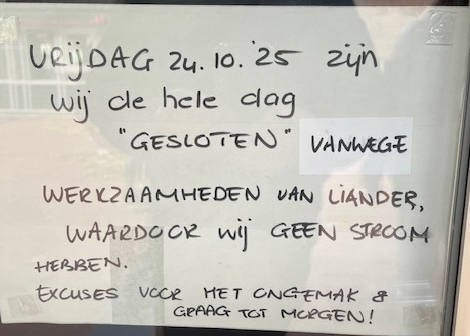 VRIJDAG 24.10.'25 zijn
wij de hele dag
"GESLOTEN" VANWEGE
WERKZAAMHEDEN VAN LIANDER,
WAARDOOR wij GEEN STROOM
HEBBEN.
EXCUSES VOOR HET ONGEMAK &
GRAAG TOT MORGEN!